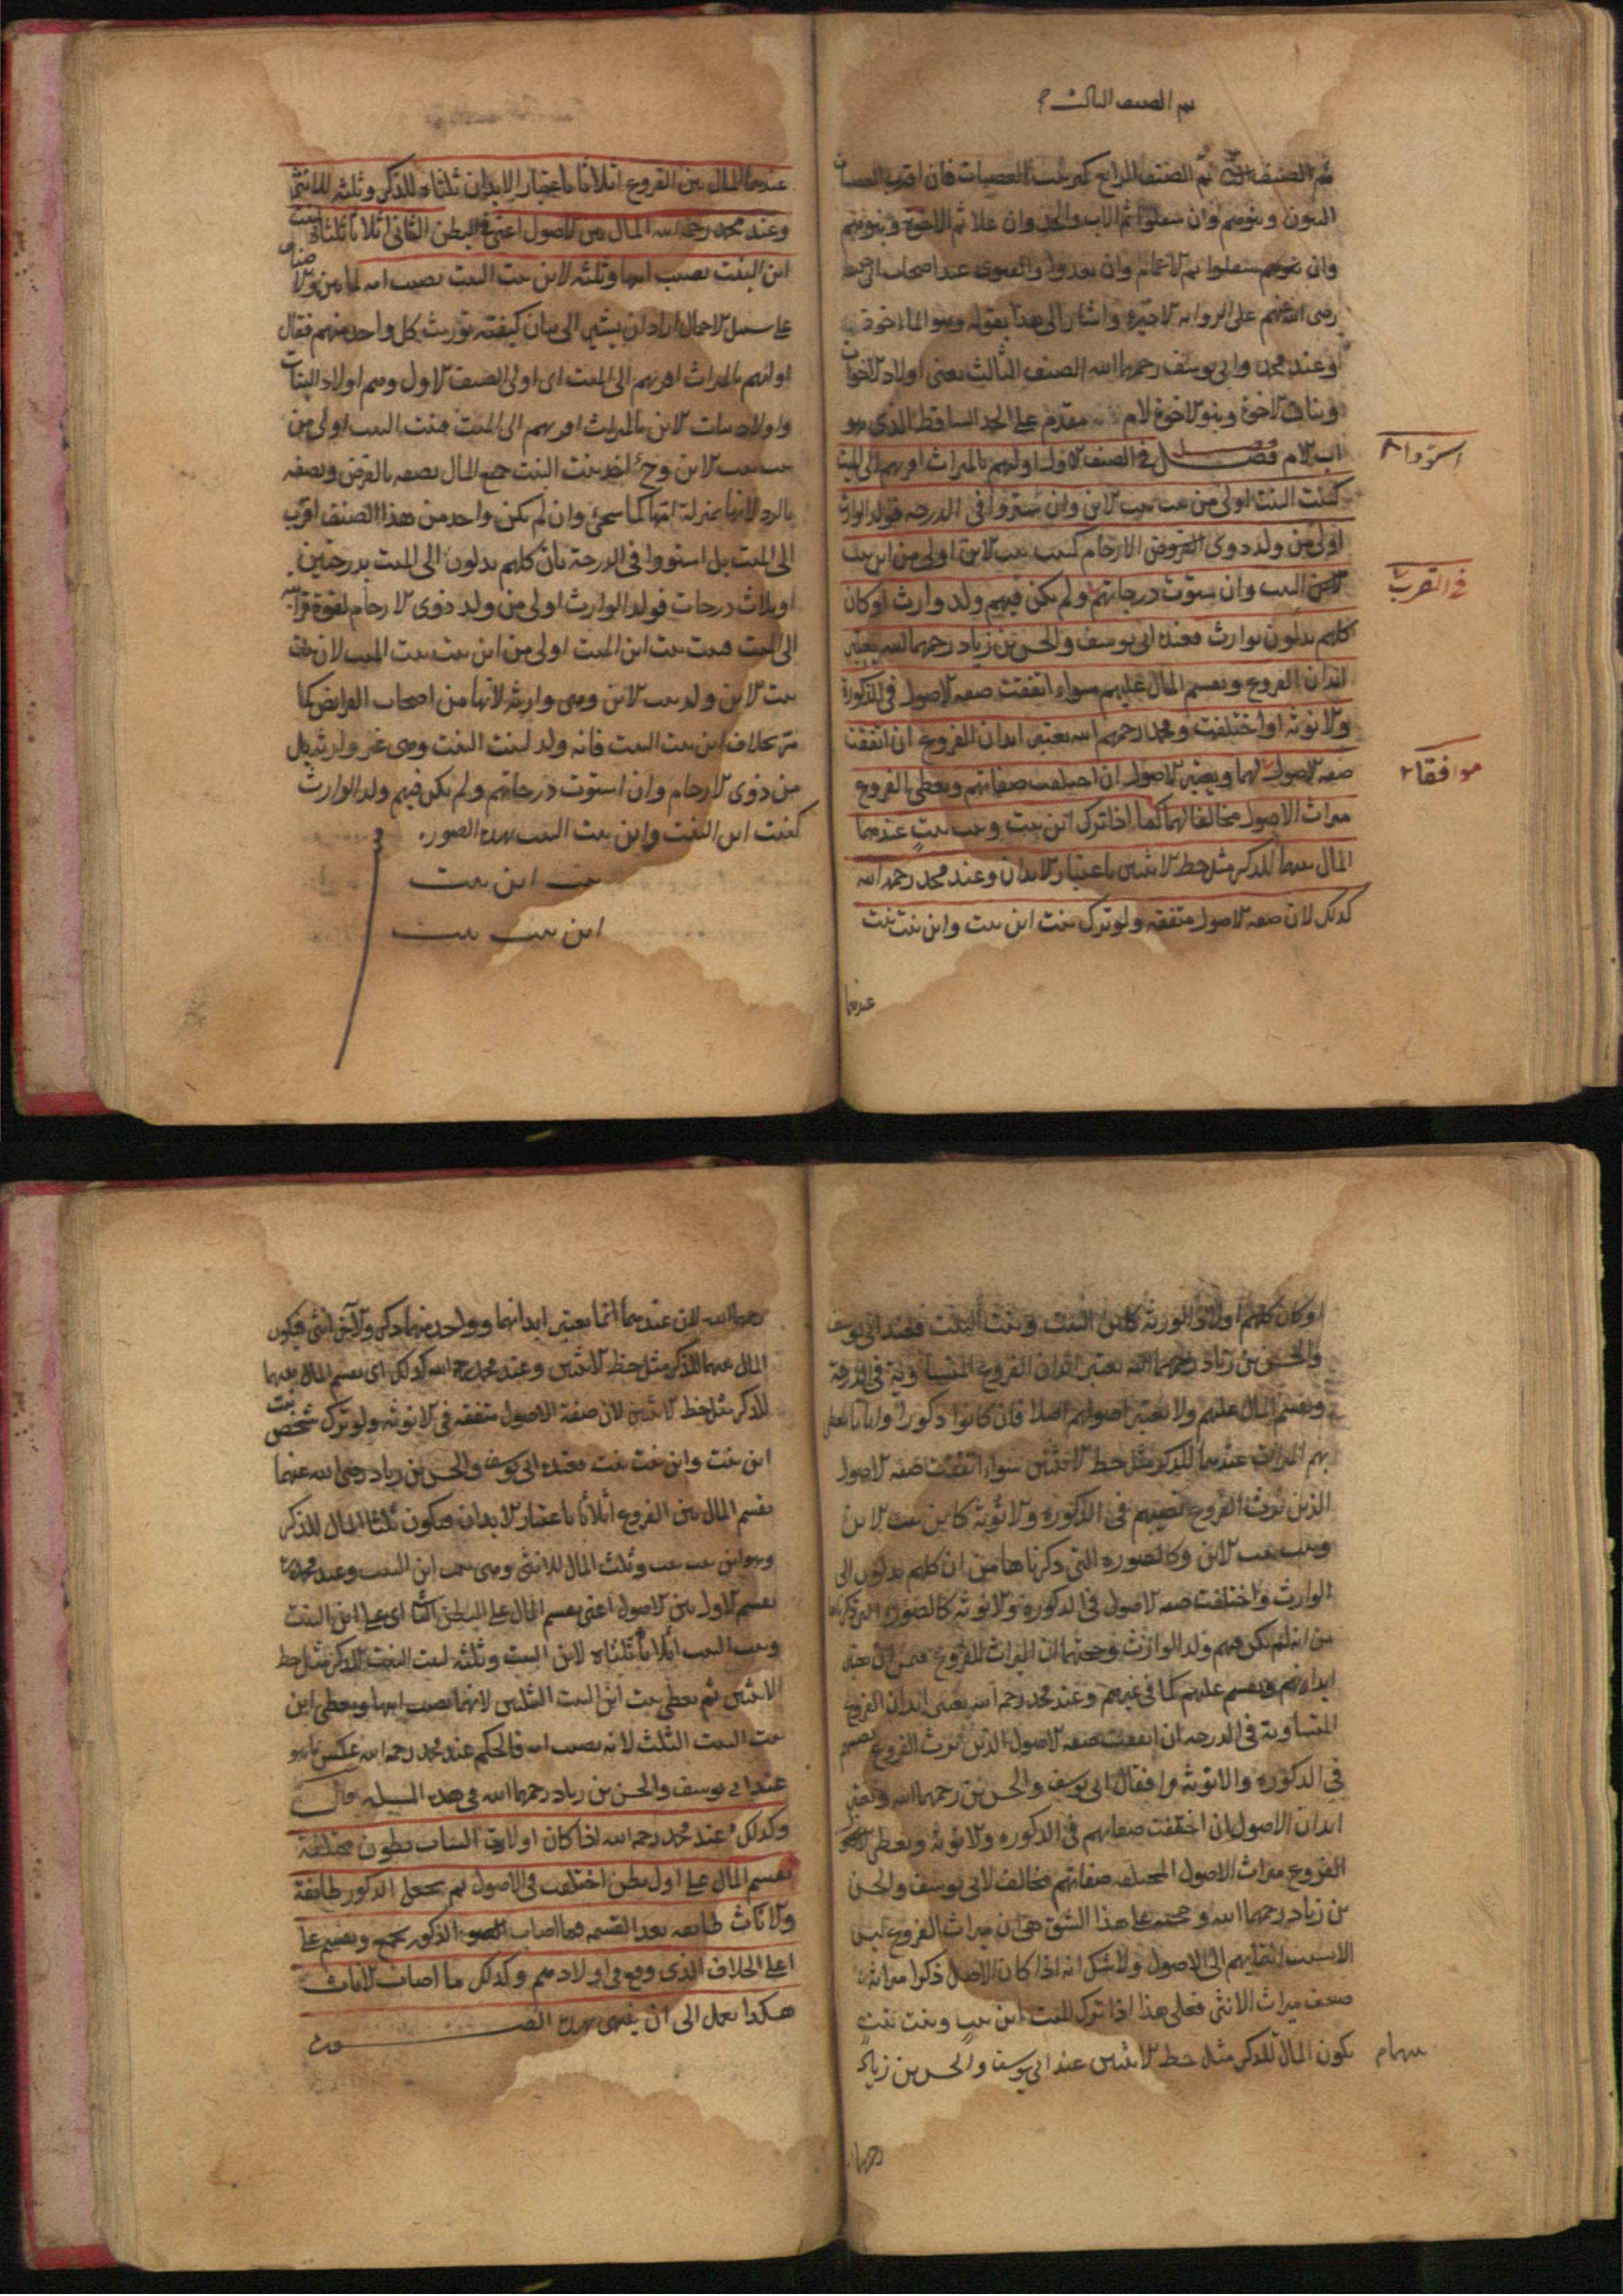 ثم الصنف الثالث
ثم الصنف الثالث ثم الصنف الرابع كترتيب العصبات فان اقرب العصبات
البنون وبنوهم وان سفلوا ثم الاب والجد وان علا ثم الاخوة وبنوهم
وان سفلوا ثم الاعمام وان بعدوا والفتوى عند اصحاب
رضى الله عنهم على الرواية الاخيرة واشار الى هذا بقوله وهو الماخوذ
وعند محمد وابى يوسف رحمهما الله الصنف الثالث يعنى اولاد الاخوات
وبنات الاخوة وبنو الاخوة لام مقدم على الجد الساقط الذى هو
اب الام فصل فى الصنف الاول اولهم بالميراث اقربهم الى الميت
استووا
كبنت البنت اولى من بنت بنت الابن وان ستووا فى الدرجة فولد الوارث
اولى من ولد ذوى الارحام كبنت بنت الابن اولى من ابن بنت
فى القرب
البنت وان ستوت درجاتهم ولم يكن فيهم ولد وارث او كان
كلهم يدلون بوارث فعند ابى يوسف والحسن بن زياد رحمهما الله يعتبر
ابدان الفروع ويقسم المال عليهم سواء اتفقت صفة الاصول فى الذكورة
والانوثة او اختلفت ومحمد رحمهم الله يعتبر ابدان الفروع ان اتفقت
موافقا
صفة الاصول لهما ويعتبر الاصول ان اختلفت صفاتهم ويعطى الفروع
ميراث الاصول مخالفا لهما كما اذا ترك ابن بنت وبنت بنت عندهما
المال بينهما للذكر مثل حظ الانثيين باعتبار الابدان وعند محمد رحمه الله
كذلك لان صفة الاصول متفقة ولو ترك بنت ابن بنت وابن بنت بنت
عندهما
عندهما المال بين الفروع اثلاثا باعتبار الابدان ثلثاه للذكر وثلثه للانثى
وعند محمد رحمه الله المال بين الاصول اعنى فى البطن الثانى اثلاثا ثلثاه لبنت
ابن البنت نصيب ابيها وثلثه لابن بنت البنت نصيب امه لما بين
على سبيل الاجمال اراد ان يشير الى بيان كيفية توريث كل واحد منهم فقال
اولهم بالميراث اقربهم الى الميت اى اولى الصنف الاول وهم اولاد البنات
واولاد بنات الابن بالميراث اقربهم الى الميت فبنت البنت اولى من
بنت بنت الابن وح لبنت البنت جميع المال نصفه بالفرض ونصفه
بالرد لانها بمنزلة امها كما سيجئ وان لم يكن واحد من هذا الصنف اقرب
الى الميت بل استووا فى الدرجة بان كلهم يدلون الى الميت بدرجتين
او بثلاث درجات فولد الوارث اولى من ولد ذوى الارحام لقوة قرابته
الى الميت فبنت بنت ابن الميت اولى من ابن بنت بنت الميت لان بنت
بنت الابن ولد بنت الابن وهى وارثة لانها من اصحاب الفرايض كما
مر بخلاف ابن بنت البنت فانه ولد لبنت البنت وهى غير وارثة بل
من ذوى الارحام وان استوت درجاتهم ولم يكن فيهم ولد الوارث
كبنت ابن البنت وابن بنت البنت بهذه الصورة
بنت ابن بنت
ابن بنت بنت
او كان كلهم اولاد الورثة كابن البنت وبنت البنت فعند ابى يوسف
والحسن بن زياد رحمهما الله يعتبر ابدان الفروع المتساوية فى الدرجة
ويقسم المال عليهم ولا يعتبر اصولهم اصلا فان كانوا ذكورا واناثا يعطى
بهم الميراث عندهما للذكر مثل حظ الانثيين سواء اتفقت صفة الاصول
الذين يرث الفروع نصيبهم فى الذكورة والانوثة كابن بنت الابن
وبنت بنت الابن وكالصورة التى ذكرناها من ان كلهم يدلون الى
الوارث واختلفت صفة الاصول فى الذكورة والانوثة كالصورة التى ذكرناها
من انه لم يكن فيهم ولد الوارث وحجتهما ان الميراث للفروع
ابدانهم ويقسم عليهم كما فى غيرهم وعند محمد رحمه الله يعتبر ابدان الفروع
المتساوية فى الدرجة ان اتفقت صفة الاصول الذين يرث الفروع نصيبهم
فى الذكورة والانوثة وافقا لابى يوسف والحسن بن رحمهما الله ويعتبر
ابدان الاصول ان اختلفت صفاتهم فى الذكورة والانوثة ويعطى
الفروع ميراث الاصول المختلفة صفاتهم مخالفا لابى يوسف والحسن
بن زياد رحمهما الله وحجته على هذا الشق هى ان ميراث الفروع ليس
الا بسبب انتمايهم الى الاصول ولا شك انه اذا كان الاصل ذكرا ميراثه
ضعف ميراث الانثى فعلى هذا اذا ترك الميت ابن بنت وبنت بنت
يكون المال للذكر مثل حظ الانثيين عند ابى يوسف والحسن بن زياد
سهام
رحمهما
رحمهما الله لان عندهما انما يعتبر ابدانهما وواحد منهما ذكر والاخر انثى فيكون
المال بينهما للذكر مثل حظ الانثيين وعند محمد رحمه الله كذلك اى يقسم المال بينهما
للذكر مثل حظ الانثيين لان صفة الاصول متفقة فى الانوثة ولو ترك شخص بنت
ابن بنت وابن بنت بنت فعند ابى يوسف والحسن بن زياد رضى الله عنهما
يقسم المال بين الفروع اثلاثا باعتبار الابدان فيكون ثلثا المال للذكر
وهو ابن بنت بنت وثلث المال للانثى وهى بنت ابن البنت وعند محمد
يقسم الاول بين الاصول اعنى يقسم المال على البطن الثانى اى على ابن البنت
وبنت البنت اثلاثا ثلثاه لابن البنت وثلثه لبنت البنت للذكر مثل حظ
الانثيين ثم يعطى بنت ابن البنت الثلثين لانهما نصيب ابيها ويعطى ابن
بنت البنت الثلث لانه نصيب امه فالحكم عند محمد رحمه الله عكس ما هو
عند ابى يوسف والحسن بن زياد رحمهما الله فى هذه المسئلة قال
وكذلك عند محمد رحمه الله اذا كان اولاد البنات بطون مختلفة
يقسم المال على اول بطن اختلف فى الاصول ثم يجعل الذكور طايفة
والاناث طايفة بعد القسمة فما اصاب الذكور يجمع ويقسم على
اعلى الخلاف الذى وقع فى اولادهم وكذلك ما اصاب الاناث
هكذا يعمل الى ان ينتهى بهذه الصورة